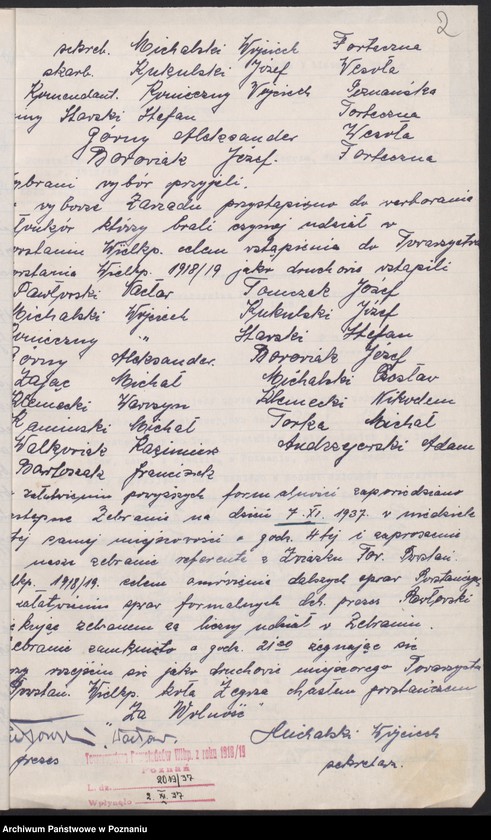 2
sekret. Michalski Wojciech Forteczna
skarb. Kukulski Józef Wesoła
Komendant. Koniczny Wojciech Poznańska
ny Starski Stefan Forteczna
Górny Aleksander Wesoła
Boroviak Józef. Forteczna
ybrani wybór przyjęli.
wyborze Zarządu przystąpiono do werbowania
łonków którzy brali czynny udział w
owstaniu Wielkp. celem wstąpienia do Towarzystwa
owstania Wielkp. 1918/19 jako druchowie wstąpili
Pawłowski Wacław Tomczak Józef
Michalski Wojciech Kukulski Józef
Koniczny " Starski Stefan
Górny Aleksander. Boroviak Józef
Zając Michał Michalski Czesław
Klemecki Wawrzyn Klemecki Nikodem
Kaminski Michał Torka Michał
Walkoviak Kazimierz Andrzejewski Adam
Bartoszak Franciszek
załatwieniu powyższych formalności zapowiedziano
astępne Zebranie na dzień 7. XI. 1937. w niedziele
tej samej miejscowości o godz. 4tej i zaproszenie
nasze zebranie referenta z Związku Tow. Powstań.
lkp. 1918/19. celem omówienia dalszych spraw
załatwieniu spraw formalnych dh. prezes Pawłowski
ękując zebranem za liczny udział w Zebraniu.
ebranie zamknięto o godz. 21 30 żegnając się
rozejściu się jako druchowie miejscowego Towarzystwa
Powstań. Wielkp. koła Żegrze hasłem powstańczem
"Za Wolność"
Wacław. Michalski Wojciech
prezes sekretarz.
Towarzystwo Powstańców Wlkp. z roku 1918/19
POZNAŃ
L. dz. 2019/37
Wpłynęło 2. XI. 37
Archiwum Państwowe w Poznaniu